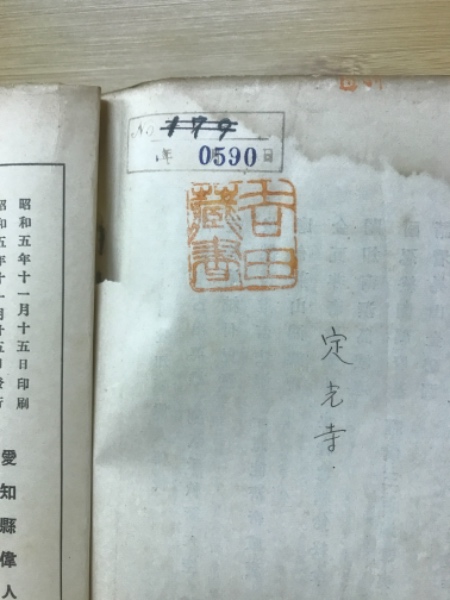 No 179
年 月 日
0590
吉田
蔵書
定光寺.
昭和五年十一月十五日印刷
昭和五年十一月廿五日發行
愛知縣偉人